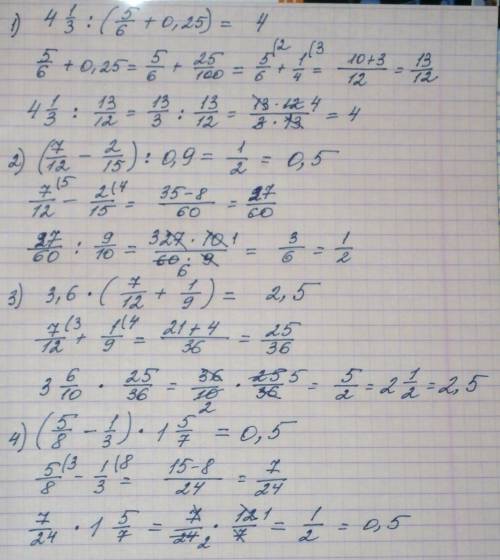 1) 4 1/3 : (5/6 + 0,25) = 4
5/6 + 0,25 = 5/6 + 25/100 = 5/6 (2 + 1/4 (3 = 10+3/12 = 13/12
4 1/3 : 13/12 = 13/3 : 13/12 = 13 · 12 4/3 · 13 = 4
2) (7/12 − 2/15) : 0,9 = 1/2 = 0,5
7/12 (5 − 2/15 (4 = 35−8/60 = 27/60
27/60 : 9/10 = 3 27 · 10 1/60 6 · 9 = 3/6 = 1/2
3) 3,6 · (7/12 + 1/9) = 2,5
7/12 (3 + 1/9 (4 = 21+4/36 = 25/36
3 6/10 · 25/36 = 36/10 2 · 25 5/36 = 5/2 = 2 1/2 = 2,5
4) (5/8 − 1/3) · 1 5/7 = 0,5
5/8 (3 − 1/3 (8 = 15−8/24 = 7/24
7/24 · 1 5/7 = 7/24 2 · 12 1/7 = 1/2 = 0,5